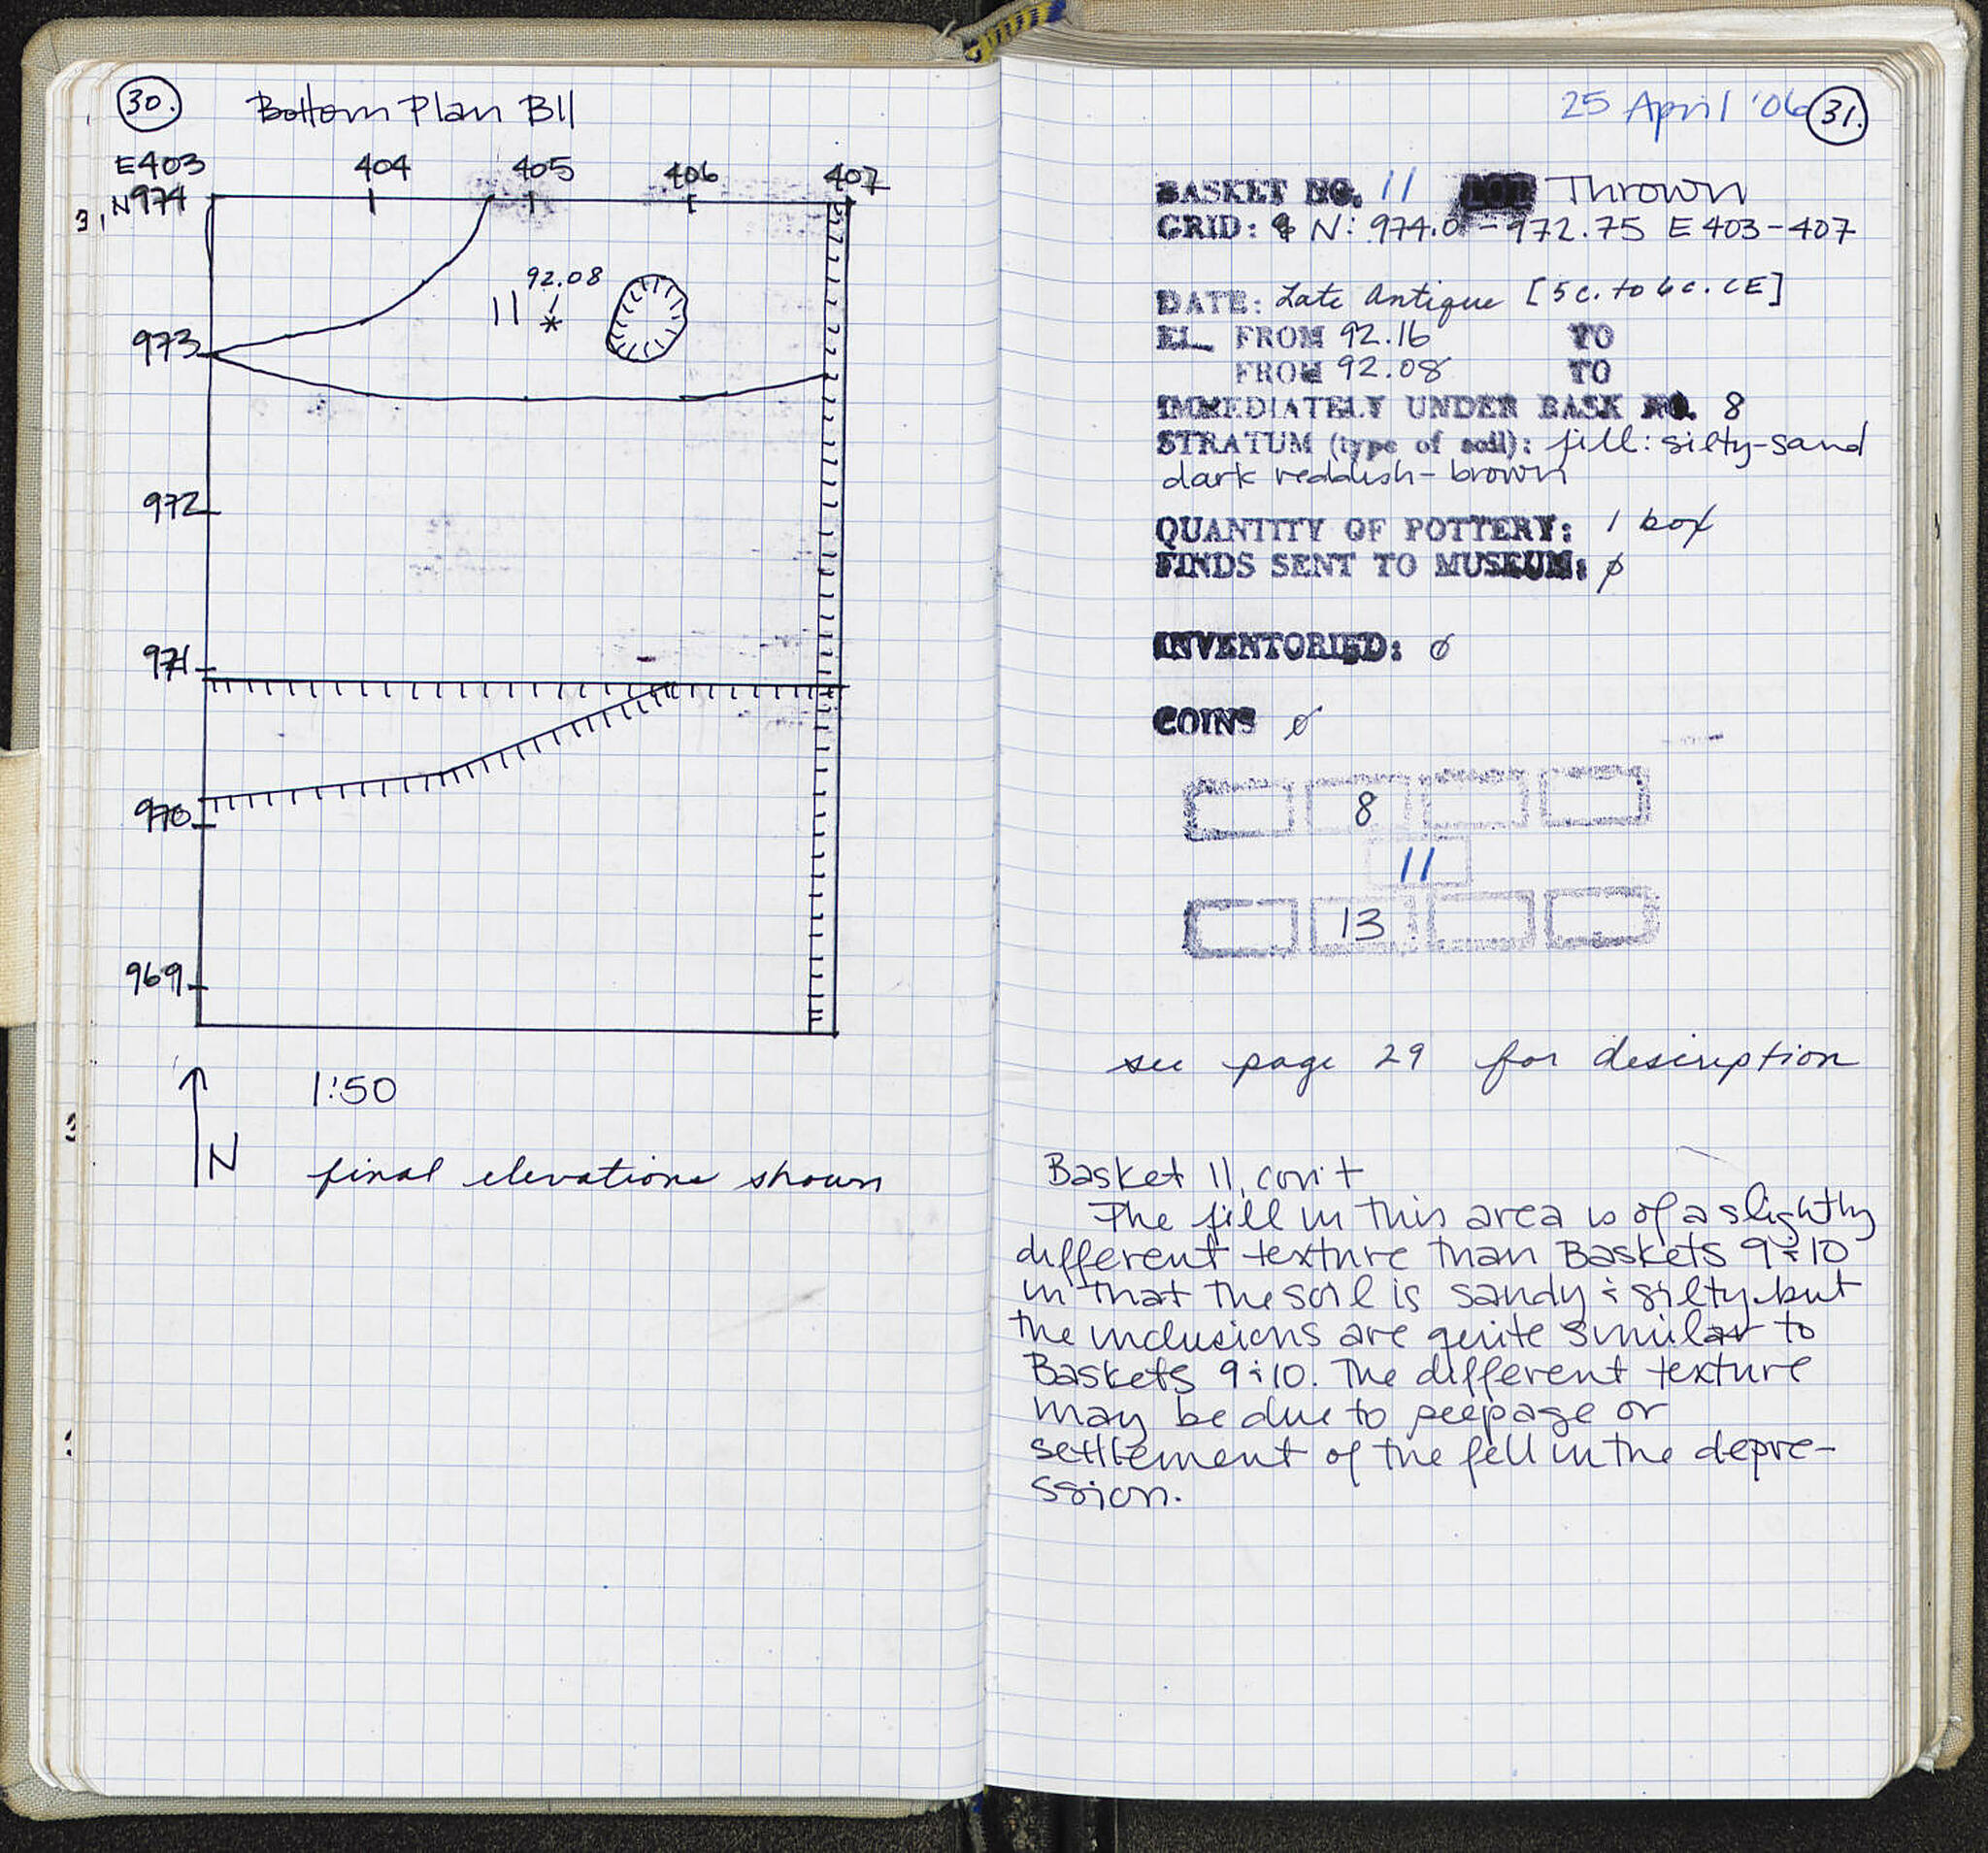 30.
Bottom Plan B11
E403 404 405 406 407
N974
92.08
11 *
973
972
971
970
969
1:50
N
final elevations shown
25 April '06 31.
BASKET NO. 11 LOT Thrown
GRID: N: 974.0 - 972.75 E 403-407
DATE: Late Antique [5 c. to 6 c. CE]
EL. FROM 92.16 TO
FROM 92.08 TO
IMMEDIATELY UNDER BASK NO. 8
STRATUM (type of soil): fill: silty-sand
dark reddish-brown
QUANTITY OF POTTERY: 1 box
FINDS SENT TO MUSEUM: ø
INVENTORIED: ø
COINS ø
8
11
13
see page 29 for description
Basket 11, con't
The fill in this area is of a slightly
different texture than Baskets 9 & 10
in that the soil is sandy & silty but
the inclusions are quite similar to
Baskets 9 & 10. The different texture
may be due to seepage or
settlement of the fill in the depre-
ssion.